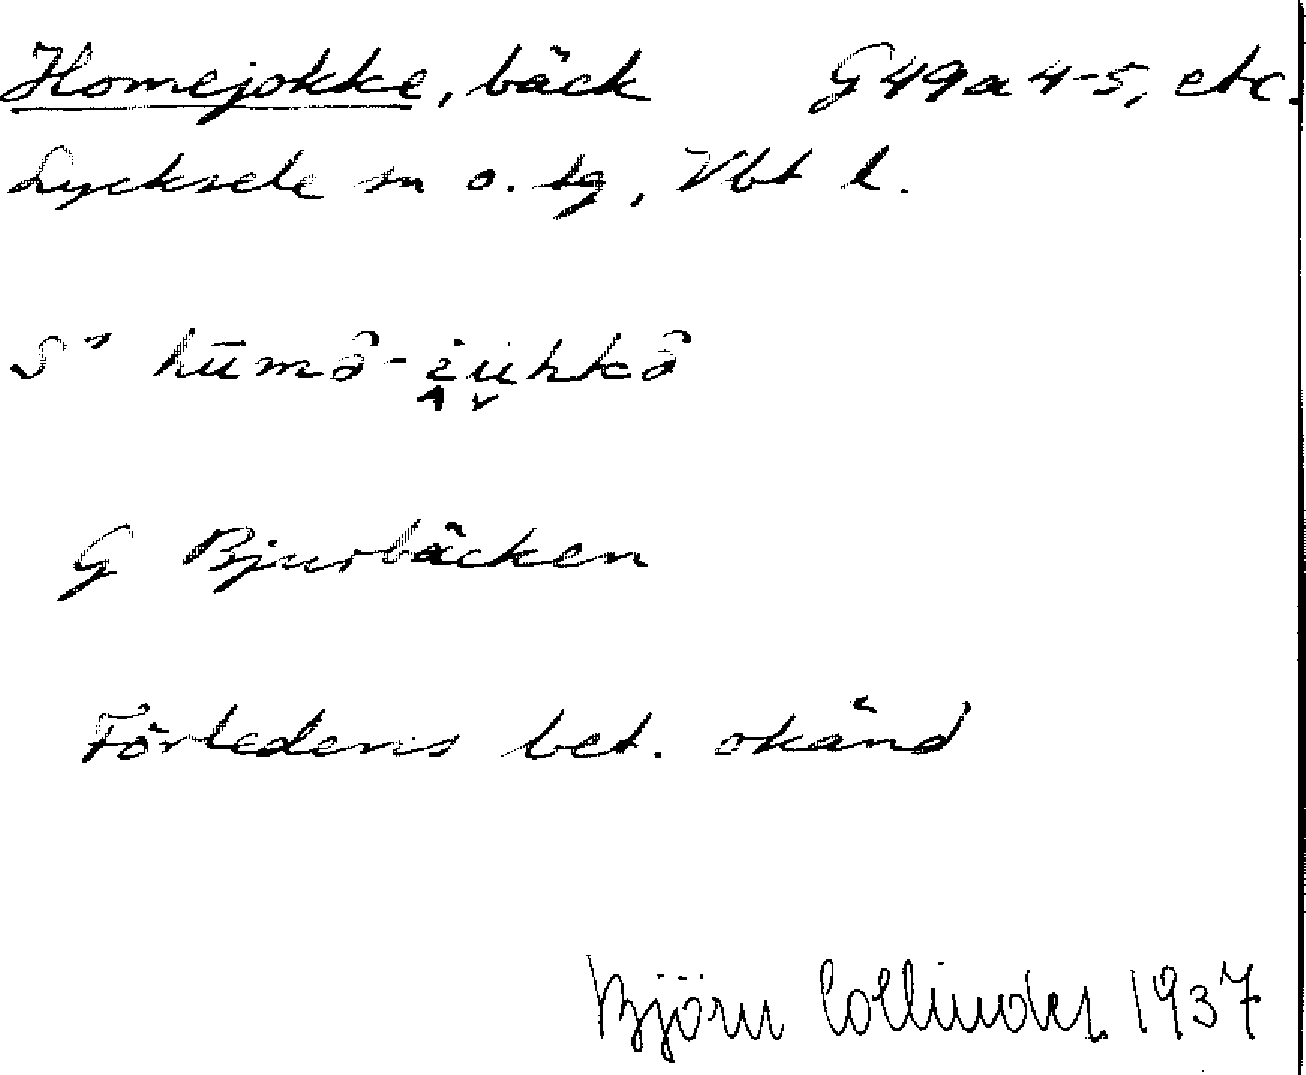 Homejokke, bäck G 49 a 4-5, etc.
Lycksele sn o. tg, Vbt l.
S' hūmâ-i̭u̬hkâ
G Bjurbäcken
Förledens bet. okänd
Björn Collinder 1937